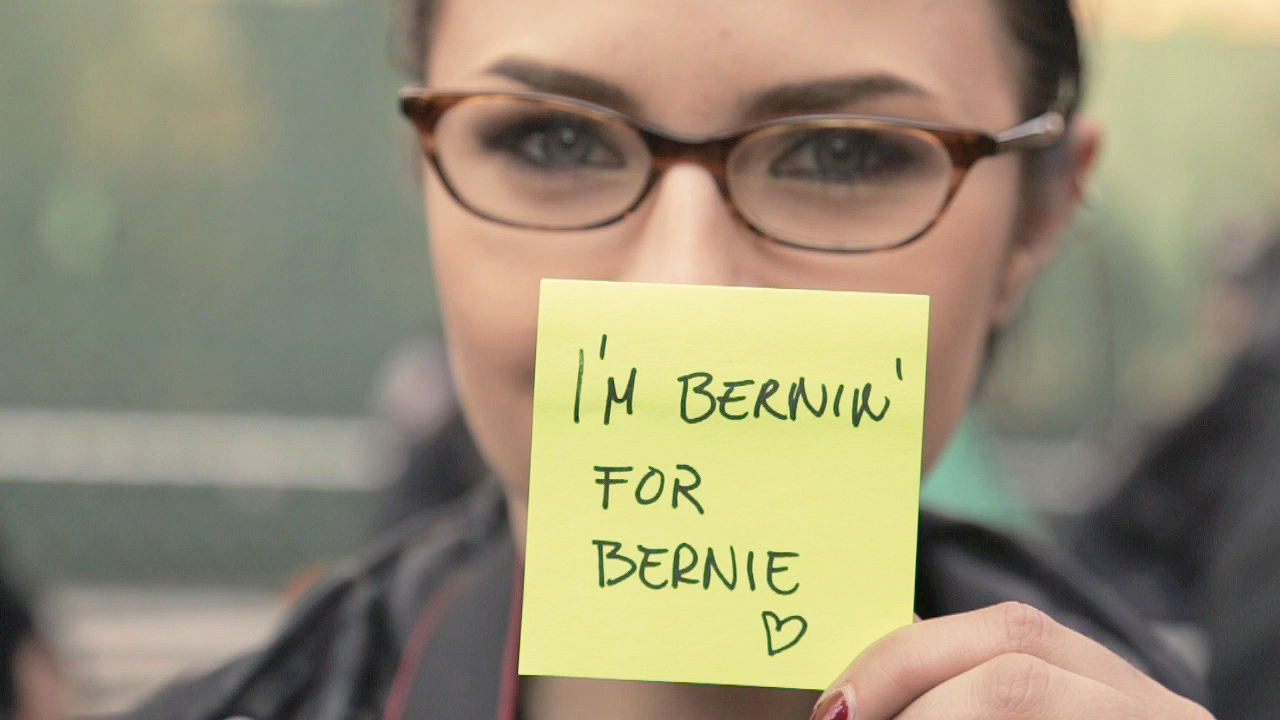 I'M BERNIN'
FOR
BERNIE
♡